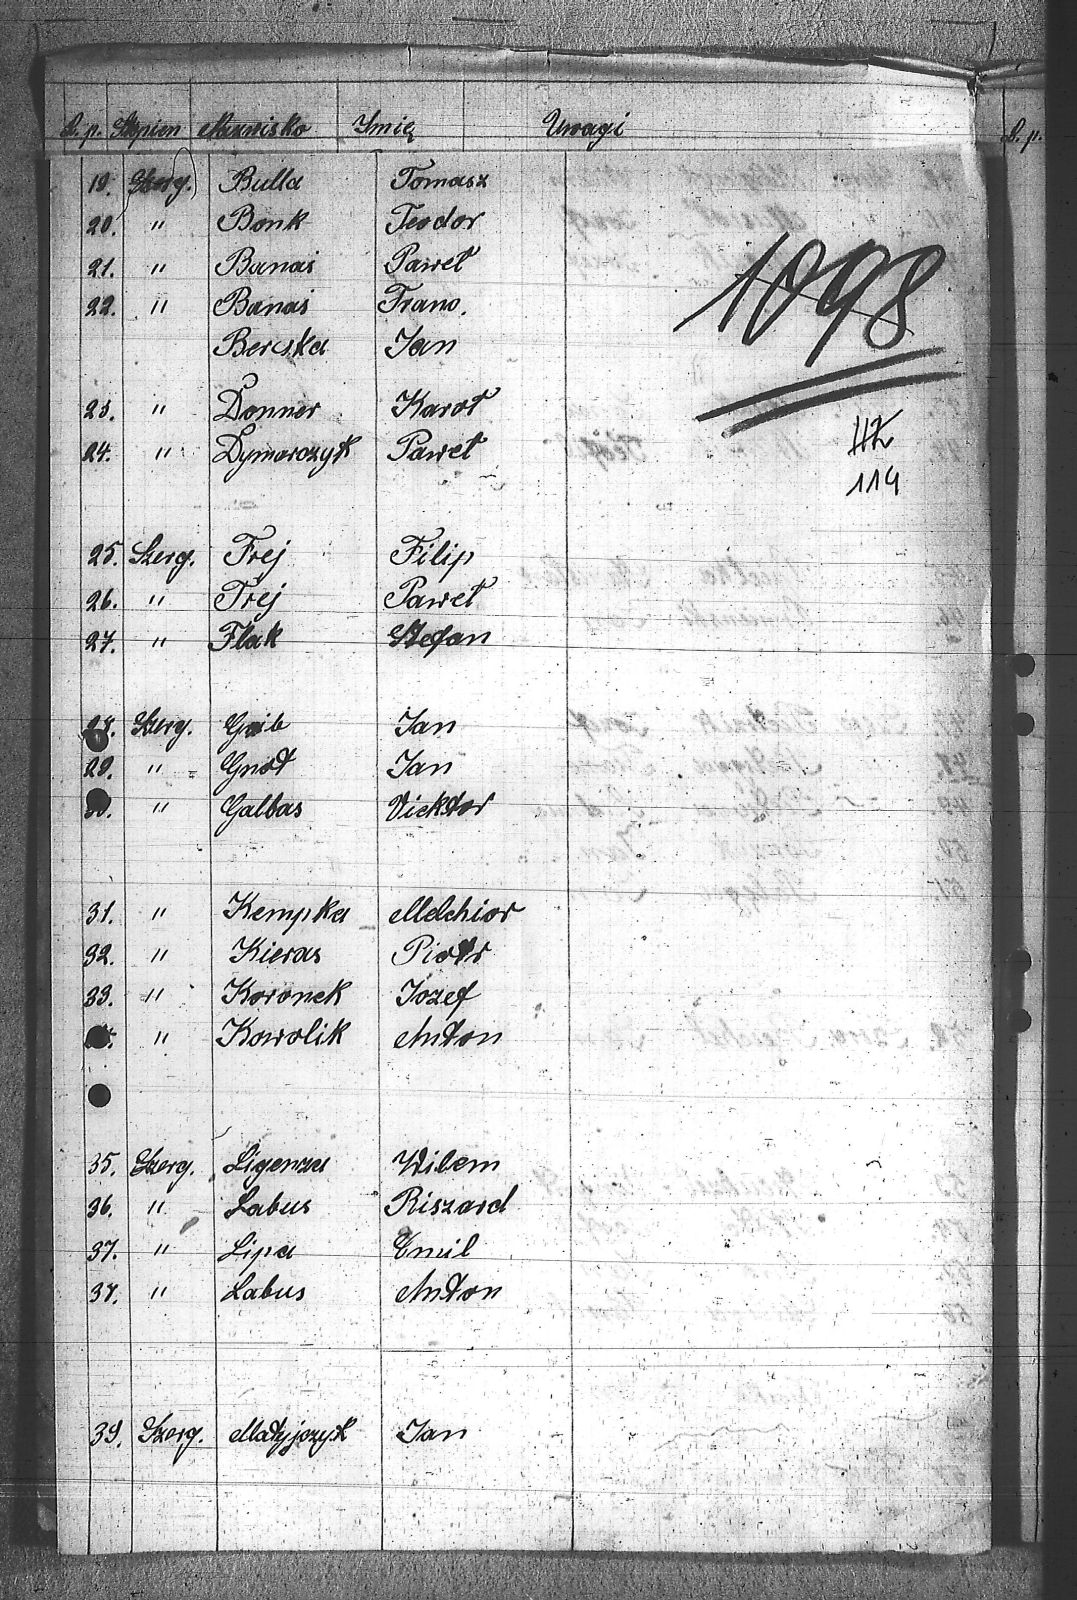 L. p. Stopien Nazwisko Imię Uwagi
L. p.
19. Szerg. Bulla Tomasz
20. " Bonk Teodor
21. " Banaś Paweł
22. " Banaś Franc.
1098
Jan
23. " Donner Karol
24. " Dymarczyk Paweł
114
25. Szerg. Frej Filip
26. " Frej Paweł
27. " Flak Stefan
28. Szerg. Grib Jan
29. " Gnot Jan
30. " Galbas Vicktor
31. " Kempka Melchior
32. " Kieras Piotr
33. " Koronek Jozef
" Kowolik Anton
35. Szerg. Ligenza Wilem
36. " Labus Riszard
37. " Lipa Emil
37. " Labus Anton
39. Szerg. Matyjczyk Jan